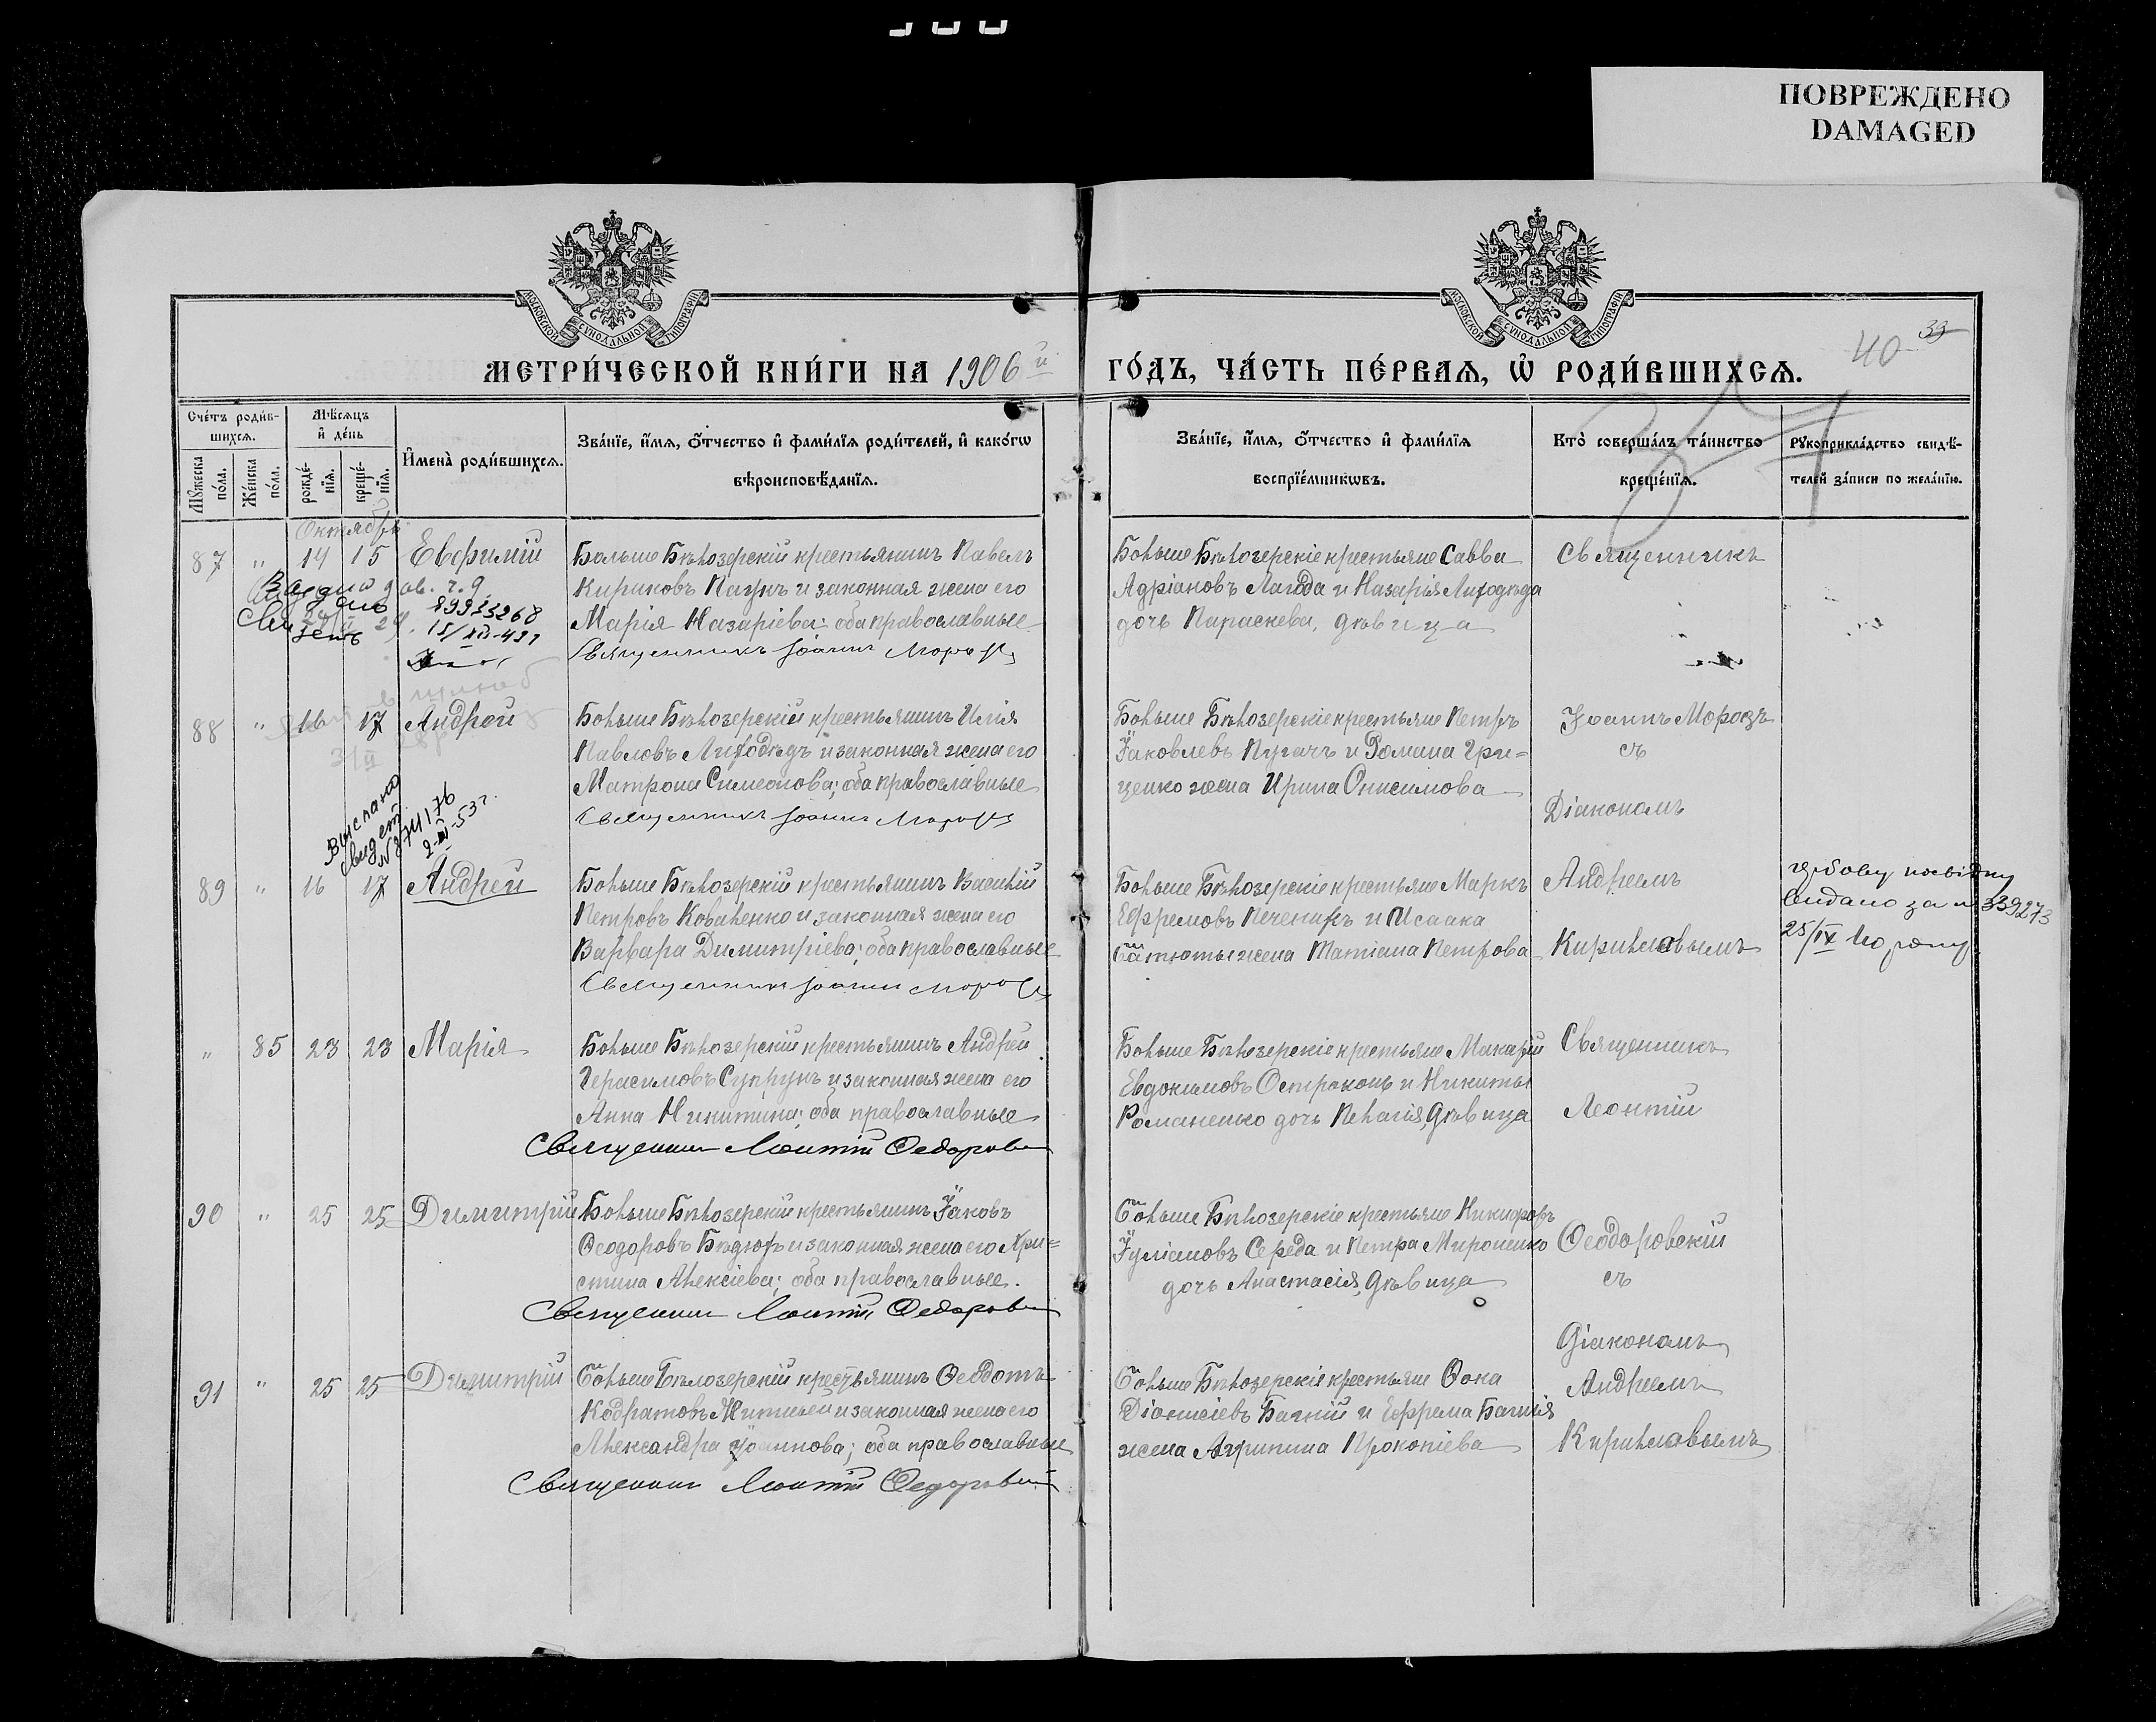 ПОВРЕЖДЕНО
DAMAGED
МОСКОВСКОЙ СУНОДАЛЬНОЙ ТИПОГРАФІИ
МОСКОВСКОЙ СУНОДАЛЬНОЙ ТИПОГРАФІИ
40 33
34
МЕТРИ́ЧЕСКОЙ КНИ́ГИ НА 1906 й ГО́ДЪ, ЧА́СТЬ ПЕ́РВАѦ, Ѡ РОДИ́ВШИХСѦ.
Сче́тъ роди́в-
шихсѧ.
Мꙋжеска по́ла.
Же́нска по́ла.
Мѣ́сѧцъ
и де́нь
рожде́-
нїѧ.
креще́-
нїѧ.
Имена̀ роди́вшихсѧ.
Зва́нїе, и́мѧ, ѻ́тчество и фами́лїѧ роди́телей, и како́гѡ
вѣроисповѣ́данїѧ.
Зва́нїе, и́мѧ, ѻ́тчество и фами́лїѧ
воспрїе́мникѡвъ.
Кто̀ соверша́лъ та́инство
креще́нїѧ.
Рꙋкоприкла́дство свидѣ́-
телей за́писи по жела́нїю.
Октябрь
87 " 14 15 Евфимій
Больше Бѣлозерскій крестьянинъ Павелъ
Кириковъ Пацукъ и законная жена его
Марія Назаріева; оба православные
Священникъ Іоаннъ Морозъ
Больше Бѣлозерскіе крестьяне Савва
Адріановъ Лагода и Назарія Лиходѣда
дочь Параскева, дѣвица
Священникъ
88 " 16 17 Андрей
Больше Бѣлозерскій крестьянинъ Илія
Павловъ Лиходѣдъ и законная жена его
Матрона Симеонова; оба православные
Священникъ Іоаннъ Морозъ
Больше Бѣлозерскіе крестьяне Петръ
Іаковлевъ Пугачъ и Романа Гри=
ценко жена Ирина Онисимова
Іоаннъ Морозъ
съ
Діакономъ
Выслано
свидет.
2-III-53 г.
89 " 16 17 Андрей
Больше Бѣлозерскій крестьянинъ Василій
Петровъ Коваленко и законная жена его
Варвара Димитріева; оба православные
Священникъ Іоаннъ Морозъ
Больше Бѣлозерскіе крестьяне Маркъ
Ефремовъ Печеникъ и Исаака
жена Татіана Петрова
Андреемъ
Кирилловымъ
видано за № 339273
25/IX
" 85 23 23 Марія
Больше Бѣлозерскій крестьянинъ Андрей
Герасимовъ Супрунъ и законная жена его
Анна Никитина; оба православные
Священникъ Леонтій Федоровскій
Больше Бѣлозерскіе крестьяне Макарій
Евдокимовъ Остроконь и Никиты
Романенко дочь Пелагія, дѣвица
Священникъ
Леонтій
90 " 25 25 Димитрій
Больше Бѣлозерскій крестьянинъ Іаковъ
Ѳеодоровъ и законная жена его Хри=
стина Алексіева; оба православные.
Священникъ Леонтій Федоровскій
Больше Бѣлозерскіе крестьяне Никифоръ
Іуліановъ Середа и Петра Мироненко
дочь Анастасія, дѣвица
Ѳеодоровскій
съ
Діакономъ
91 " 25 25 Димитрій
Больше Бѣлозерскій крестьянинъ Ѳеодотъ
Кодратовъ и законная жена его
Александра Іоаннова; оба православные
Священникъ Леонтій Федоровскій
Больше Бѣлозерскіе крестьяне Ѳока
Діонисіевъ Багній и Ефрема Багнія
жена Агрипина Прокопіева
Андреемъ
Кирилловымъ